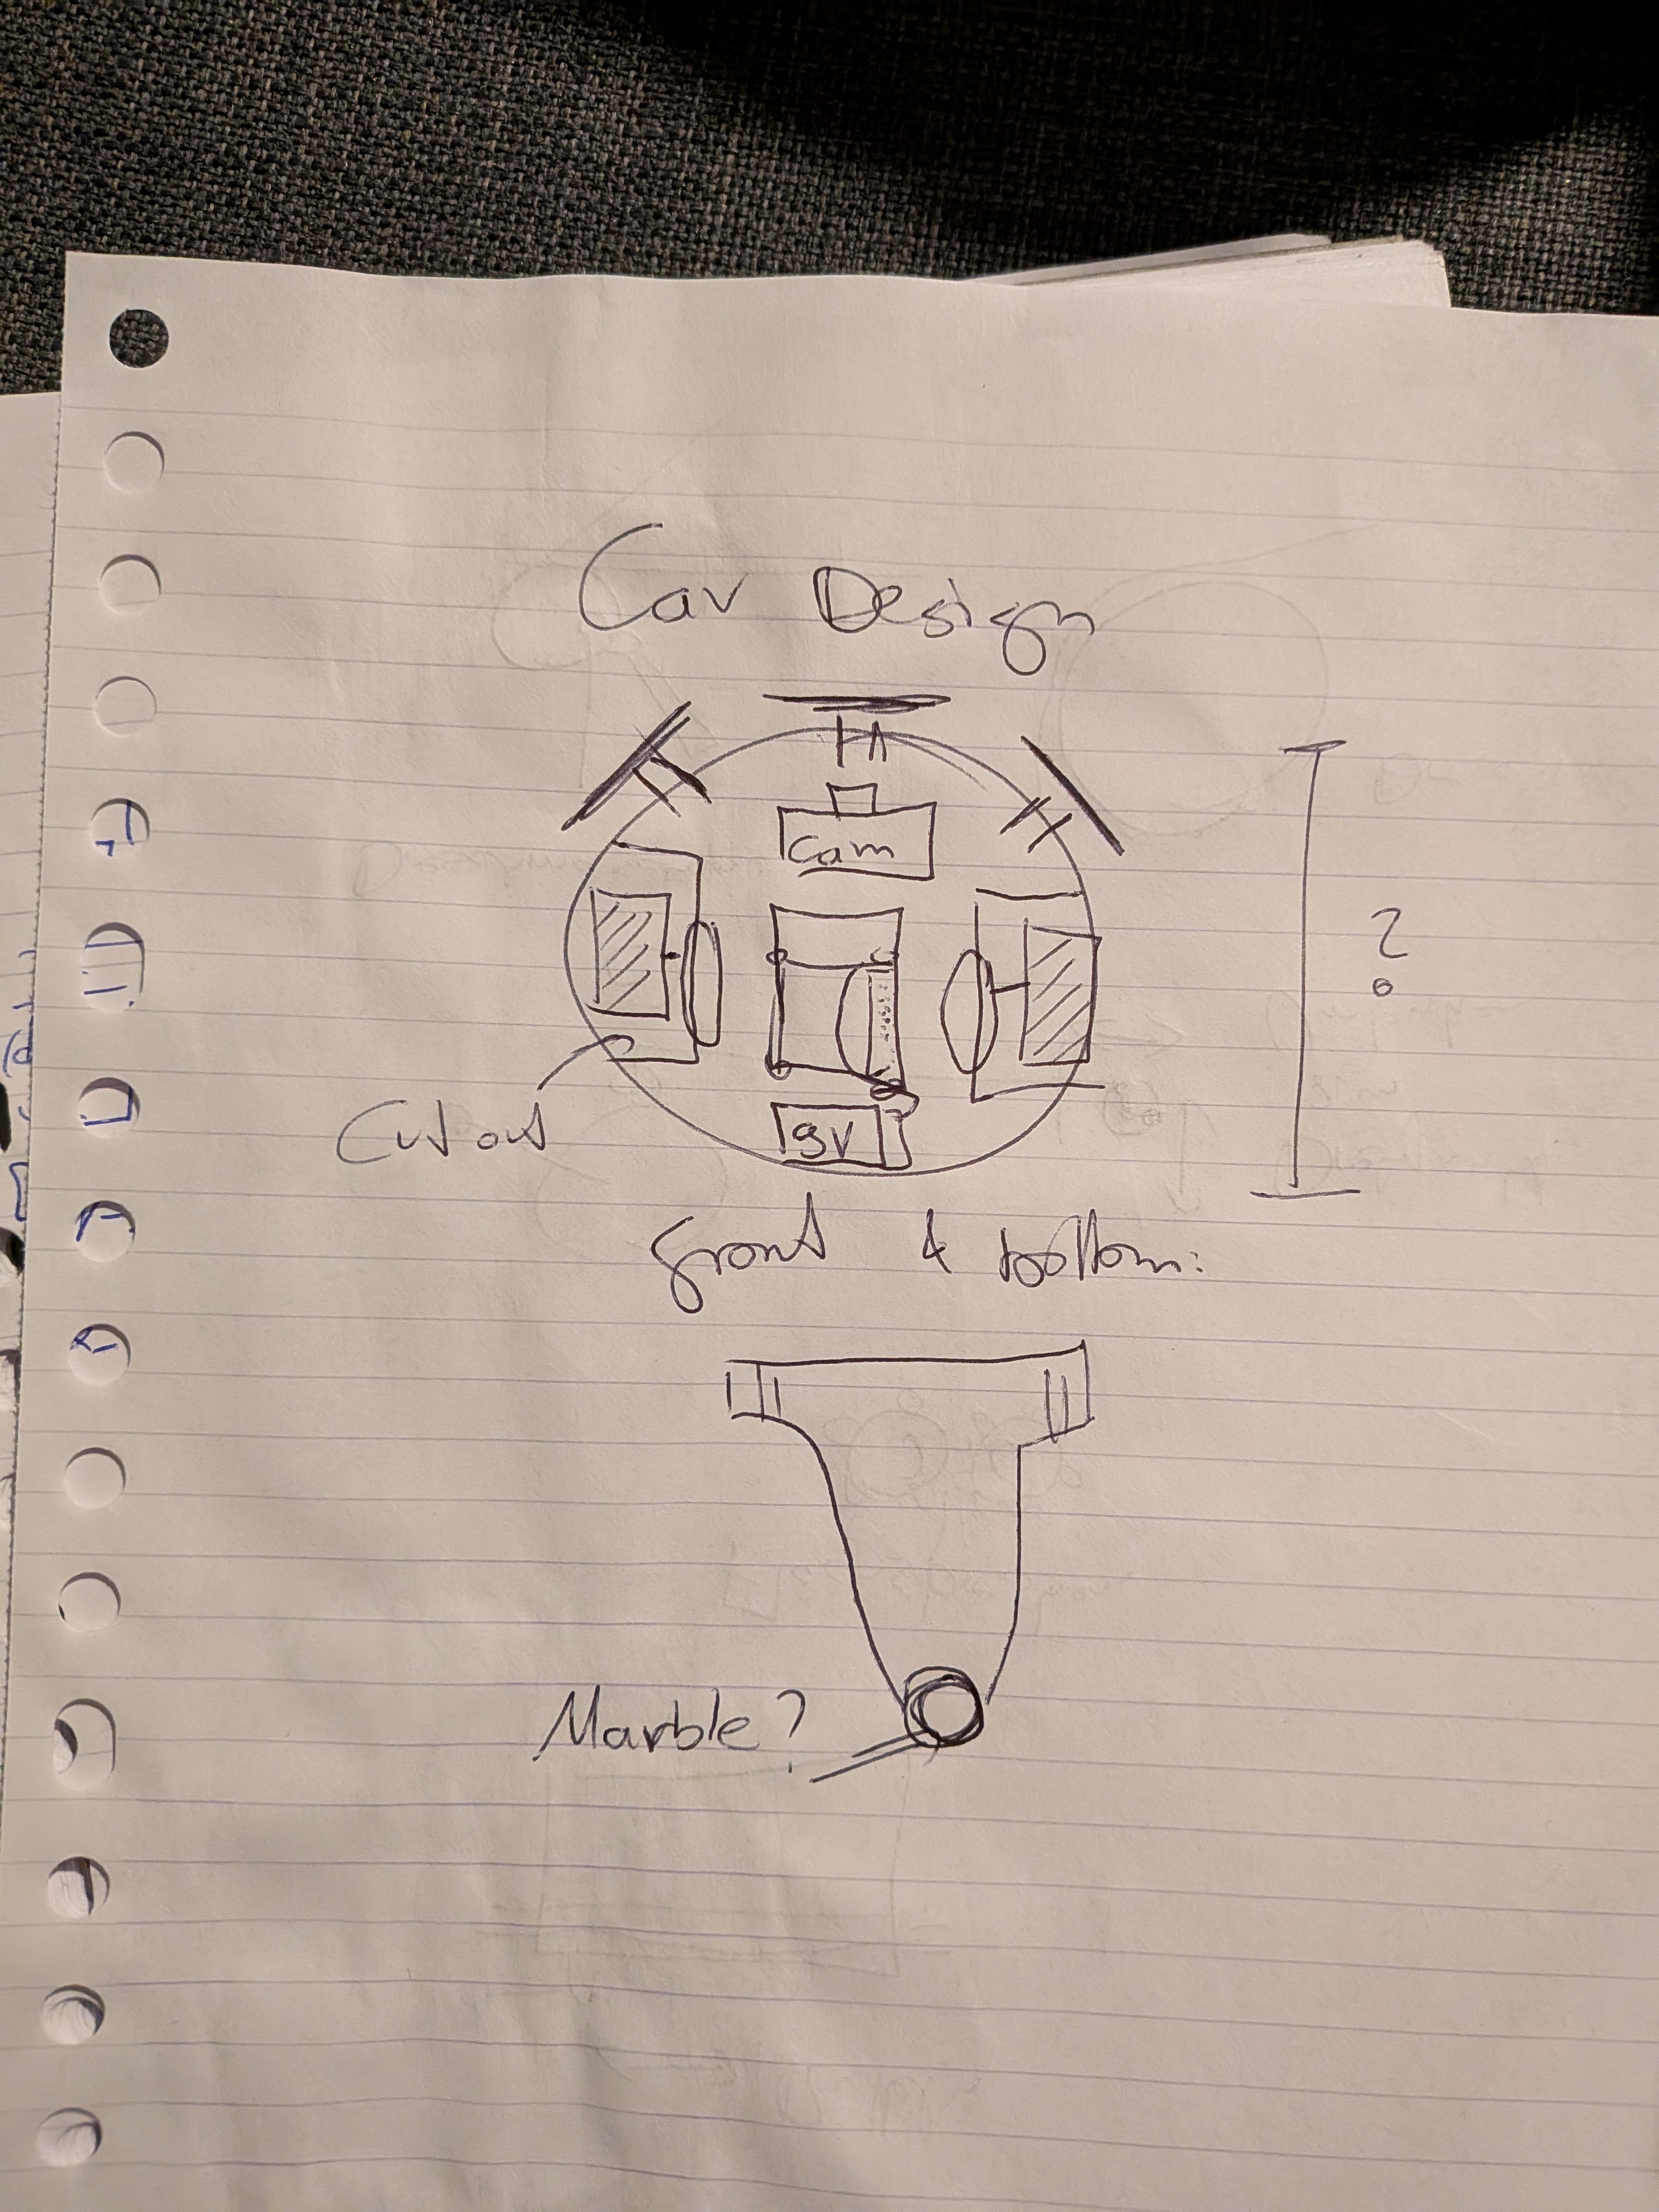 Car Design
Cam
?
Cut out
9V
front & bottom:
Marble?